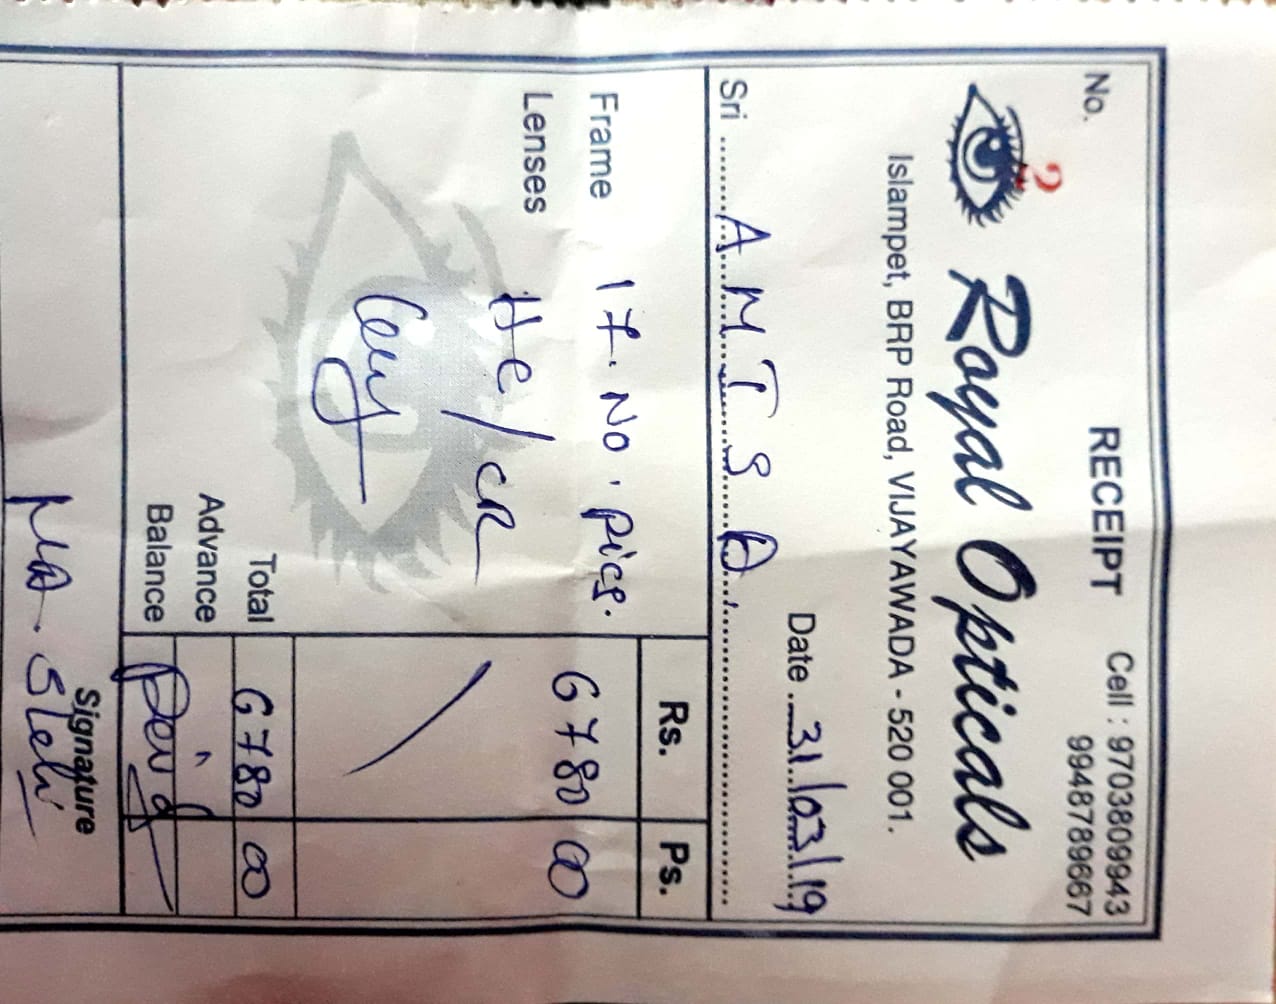 RECEIPT
Cell : 9703809943
9948789667
No. 2
Royal Opticals
Islampet, BRP Road, VIJAYAWADA - 520 001.
Date 31/03/19
Sri A M T S A.
Rs. Ps.
Frame 17. No. pics. 6780 00
Lenses He/CR
Total 6780 00
Advance
Balance
Signature